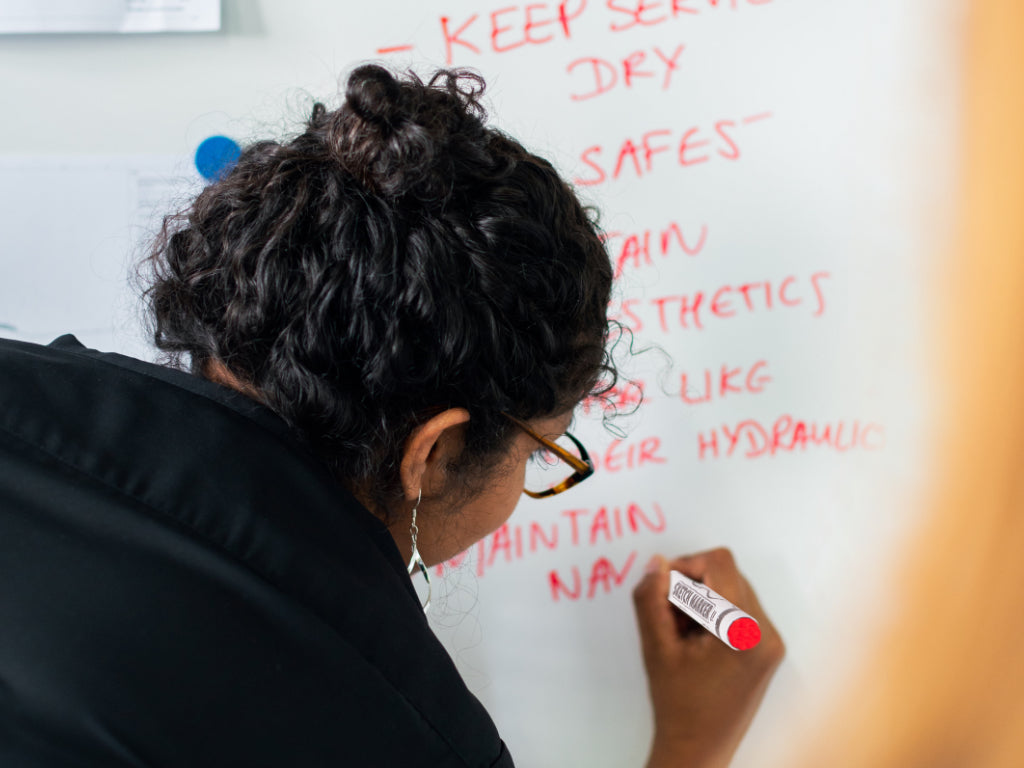 - KEEP
DRY
SAFES
TAIN
STHETICS
LIKE
EIR HYDRAULIC
MAINTAIN
NAV
SKETCH MARKER